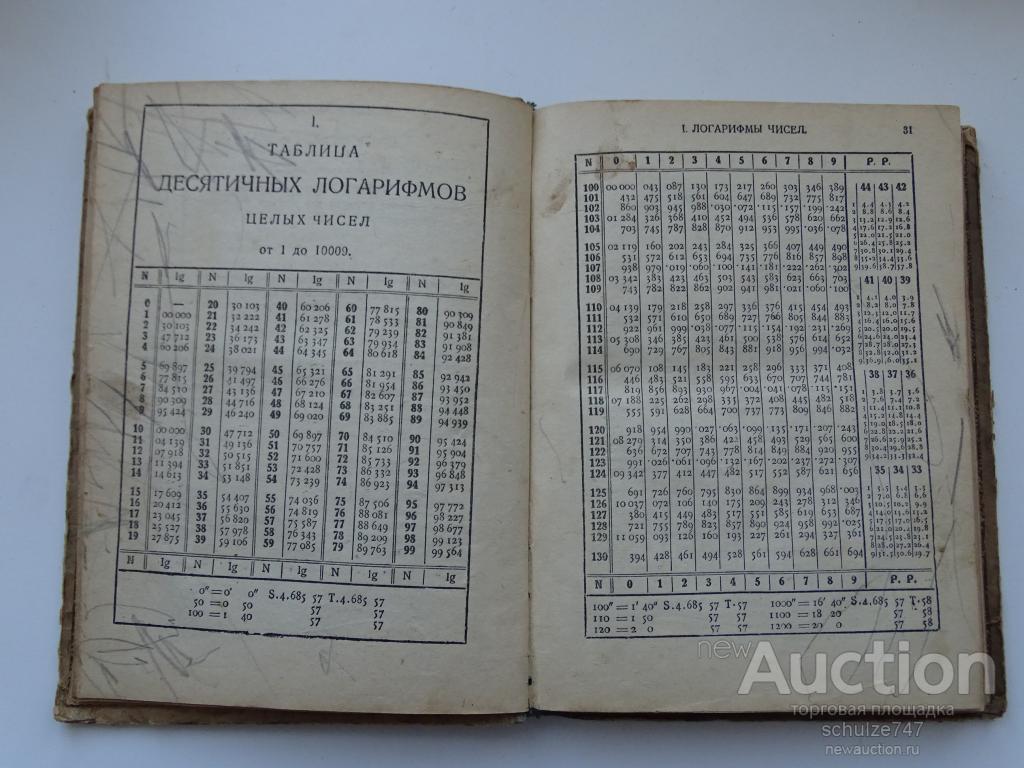 I.
ТАБЛИЦА
ДЕСЯТИЧНЫХ ЛОГАРИФМОВ
ЦЕЛЫХ ЧИСЕЛ
от 1 до 10009.
N lg N lg N lg N lg N lg
0 — 20 30 103 40 60 206 60 77 815 80 90 309
1 00 000 21 32 222 41 61 278 61 78 533 81 90 849
2 30 103 22 34 242 42 62 325 62 79 239 82 91 381
3 47 712 23 36 173 43 63 347 63 79 934 83 91 908
4 60 206 24 38 021 44 64 345 64 80 618 84 92 428
5 69 897 25 39 794 45 65 321 65 81 291 85 92 942
6 77 815 26 41 497 46 66 276 66 81 954 86 93 450
7 84 510 27 43 136 47 67 210 67 82 607 87 93 952
8 90 309 28 44 716 48 68 124 68 83 251 88 94 448
9 95 424 29 46 240 49 69 020 69 83 885 89 94 939
10 00 000 30 47 712 50 69 897 70 84 510 90 95 424
11 04 139 31 49 136 51 70 757 71 85 126 91 95 904
12 07 918 32 50 515 52 71 600 72 85 733 92 96 379
13 11 394 33 51 851 53 72 428 73 86 332 93 96 848
14 14 613 34 53 148 54 73 239 74 86 923 94 97 313
15 17 609 35 54 407 55 74 036 75 87 506 95 97 772
16 20 412 36 55 630 56 74 819 76 88 081 96 98 227
17 23 045 37 56 820 57 75 587 77 88 649 97 98 677
18 25 527 38 57 978 58 76 343 78 89 209 98 99 123
19 27 875 39 59 106 59 77 085 79 89 763 99 99 564
N lg N lg N lg N lg N lg
0″=0′ 0″ S.4.685 57 T.4.685 57
50 =0 50 57 57
100 =1 40 57 57
I. ЛОГАРИФМЫ ЧИСЕЛ. 31
N 0 1 2 3 4 5 6 7 8 9 P. P.
100 00 000 043 087 130 173 217 260 303 346 389 44 43 42
101 432 475 518 561 604 647 689 732 775 817
102 860 903 945 988 ·030 ·072 ·115 ·157 ·199 ·242
103 01 284 326 368 410 452 494 536 578 620 662
104 703 745 787 828 870 912 953 995 ·036 ·078
105 02 119 160 202 243 284 325 366 407 449 490
106 531 572 612 653 694 735 776 816 857 898
107 938 979 ·019 ·060 ·100 ·141 ·181 ·222 ·262 ·302
108 03 342 383 423 463 503 543 583 623 663 703 41 40 39
109 743 782 822 862 902 941 981 ·021 ·060 ·100
110 04 139 179 218 258 297 336 376 415 454 493
111 532 571 610 650 689 727 766 805 844 883
112 922 961 999 ·038 ·077 ·115 ·154 ·192 ·231 ·269
113 05 308 346 385 423 461 500 538 576 614 652
114 690 729 767 805 843 881 918 956 994 ·032
115 06 070 108 145 183 221 258 296 333 371 408 38 37 36
116 446 483 521 558 595 633 670 707 744 781
117 819 856 893 930 967 ·004 ·041 ·078 ·115 ·151
118 07 188 225 262 298 335 372 408 445 482 518
119 555 591 628 664 700 737 773 809 846 882
120 918 954 990 ·027 ·063 ·099 ·135 ·171 ·207 ·243
121 08 279 314 350 386 422 458 493 529 565 600
122 636 672 707 743 778 814 849 884 920 955
123 991 ·026 ·061 ·096 ·132 ·167 ·202 ·237 ·272 ·307
124 09 342 377 412 447 482 517 552 587 621 656 35 34 33
125 691 726 760 795 830 864 899 934 968 ·003
126 10 037 072 106 140 175 209 243 278 312 346
127 380 415 449 483 517 551 585 619 653 687
128 721 755 789 823 857 890 924 958 992 ·025
129 11 059 093 126 160 193 227 261 294 327 361
130 394 428 461 494 528 561 594 628 661 694
N 0 1 2 3 4 5 6 7 8 9 P. P.
100″=1′ 40″ S.4.685 57 T·57 1000″=16′ 40″ S.4.685 57 T·58
110 =1 50 57 57 1100 =18 20 57 58
120 =2 0 57 57 1200 =20 0 57 58
newAuction
торговая площадка
schulze747
newauction.ru